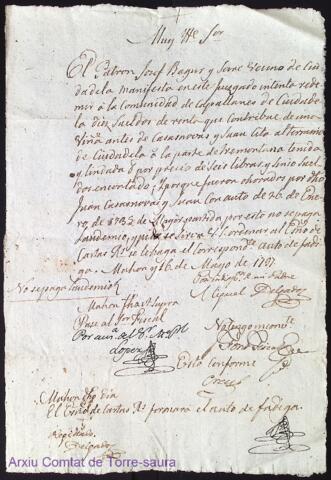 Muy Ille Sor
El Patron Josef Bagur y Seove Vecino de Ciu-
dadela Manifiesta en este Juzgado intenta rede-
mir á la Comunidad de capellanes de Ciudadela
la diez Sueldos de renta que contribuie de una
Viña antes de Casasnovas y Juan Cito al termino
de Ciudadela á la parte de tremontana tenida
y lindada &a por precio de seis libras, y sinco suel-
dos en contado, y porque fueron ahorrados por dho
Juan Casasnovas y Juan con auto de 26 de Ene-
ro de 1782 de Mayor partida por esto no se paga
Laudemio, y pide se sirva V.S. ordenar al Esno de
Cartas Rs se le haga el correspondte auto de fadi-
ga. Mahon y 16 de Mayo de 1787.
No se paga Laudemio
Por
Miguel Delgado
Mahon dho dia ut supra
Pase al Sor Fiscal
Por
Lopez
No tengo inconvte
Esta conforme
Mahon dho dia
El Esno de Cartas Rs formará el auto de fadiga.
Delgado
Arxiu Comtat de Torre-saura